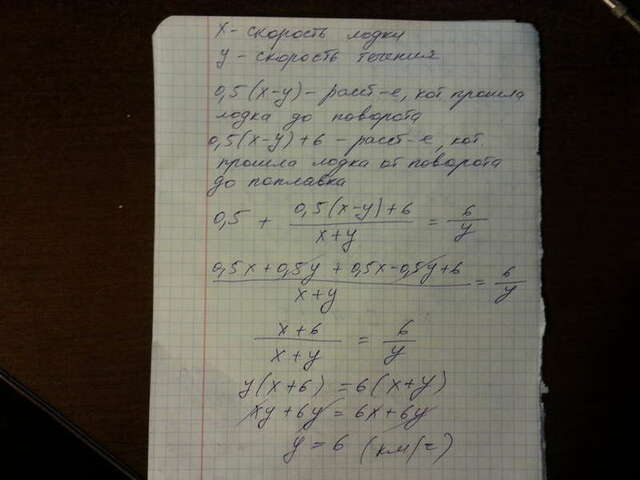 x - скорость лодки
y - скорость течения
0,5(x-y) - расст-е, кот. прошла
лодка до поворота
0,5(x-y)+6 - расст-е, кот.
прошла лодка от поворота
до поплавка
0,5 + (0,5(x-y)+6)/(x+y) = 6/y
(0,5x+0,5y+0,5x-0,5y+6)/(x+y) = 6/y
(x+6)/(x+y) = 6/y
y(x+6) = 6(x+y)
xy+6y = 6x+6y
y = 6 (км/ч)